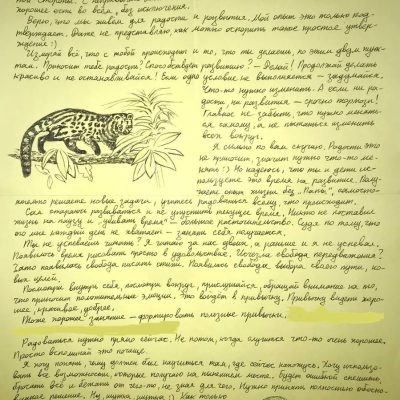 той стороны. С
хорошее есть во всём, без исключения.
Верю, что мы живём для радости и развития. Мой опыт это только под-
тверждает. Даже не представляю как можно оспорить такие простые утвер-
ждения :)
Измеряй всё, что с тобой происходит и то, что ты делаешь, по этим двум пунк-
там. Приносит тебе радость? Способствует развитию? — Делай! Продолжай делать
красиво и не останавливайся! Если одно условие не выполняется — задумайся.
Что-то нужно изменить. А если ни ра-
дости, ни развития — срочно тормози!
Главное не забыть, что нужно менять-
ся самому, а не пытаться изменить
всех вокруг.
Я сильно по вам скучаю. Радости это
не приносит, значит нужно что-то ме-
нять :) Но надеюсь, что ты и дети ис-
пользуете это время на развитие. Полу-
чаете опыт жизни без „Папы“, самостоя-
тельно решаете новые задачи, учитесь радоваться всему, что происходит.
Сам стараюсь развиваться и не упустить текущее время. Никто не поставил
жизнь на паузу и „убивать время“ – большое расточительство. Судя по тому, что
его мне каждый день не хватает – занять себя получается.
Ты не успеваешь читать? Я читаю за нас двоих, а раньше и я не успевал.
Появилось время рисовать просто в удовольствие. Исчезла свобода передвижения?
Зато появилась свобода писать стихи. Появилась свобода выбора своего пути, но-
вых целей.
Посмотри внутрь себя, посмотри вокруг, прислушайся, обращай внимание на то,
что приносит положительные эмоции. Это войдёт в привычку. Привычку видеть хоро-
шее, красивое, доброе.
Тоже хорошее занятие – формировать полезные привычки.
Радоваться нужно прямо сейчас. Не потом, когда случится что-то очень хорошее.
Просто вспоминай это почаще.
Я хочу понять чему должен был научиться там, где сейчас нахожусь. Хочу использо-
вать все возможности, которые получаю на нынешнем месте. Будет ошибкой спешить,
бросать всё и бежать от чего-то, не зная для чего. Нужно принять полностью обосно-
ванное решение. Ну, шучу, шучу :) Как только